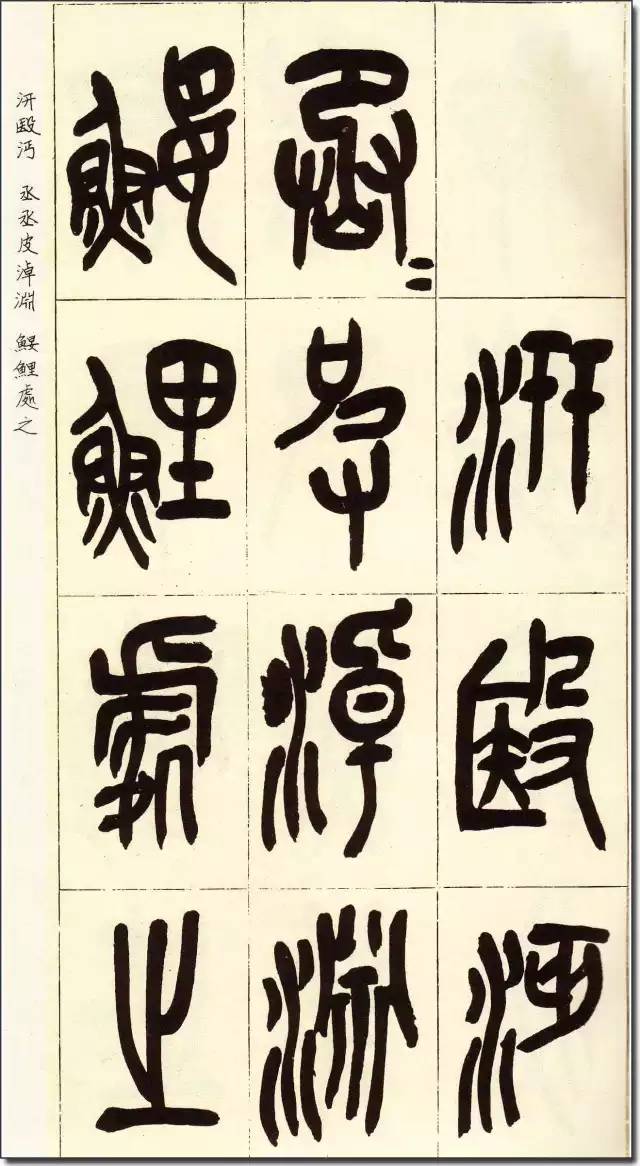 汧殹沔
丞〓皮淖淵
鰋鯉處之
汧殹沔　丞丞皮淖淵　鰋鯉處之